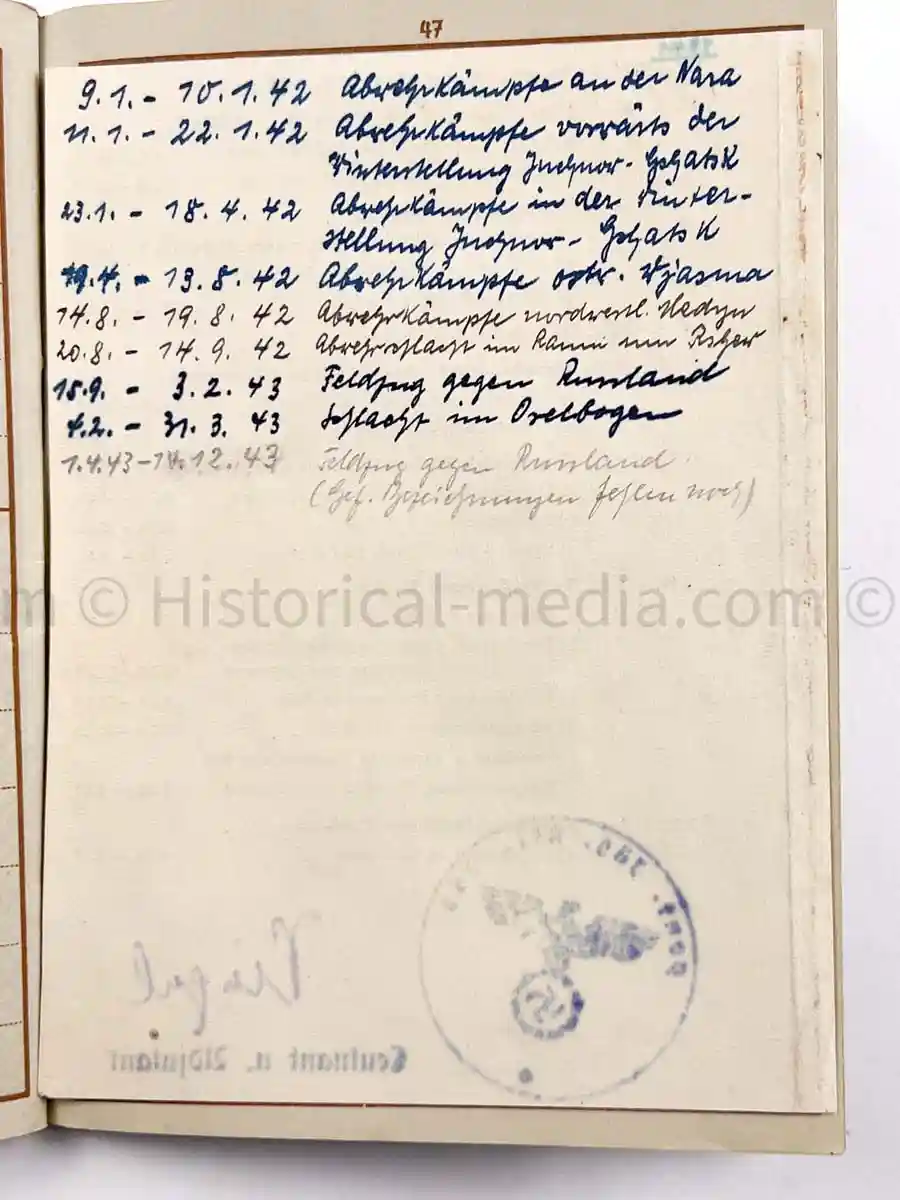 47
9.1. - 10.1.42 Abwehrkämpfe an der Nara
11.1. - 22.1.42 Abwehrkämpfe vorwärts der
Winterstellung Juchnow - Gshatsk
23.1. - 18.4.42 Abwehrkämpfe in der Winter-
stellung Juchnow - Gshatsk
19.4. - 13.8.42 Abwehrkämpfe ostw. Wjasma
14.8. - 19.8.42 Abwehrkämpfe nordwestl. Medyn
20.8. - 14.9.42 Abwehrschlacht im Raum um Rshew
15.9. - 3.2.43 Feldzug gegen Russland
4.2. - 31.3.43 Schlacht im Orelbogen
1.4.43 - 14.12.43 Feldzug gegen Russland
(Gef. Bezeichnungen fehlen noch)
m © Historical-media.com ©
Leutnant u. Adjutant